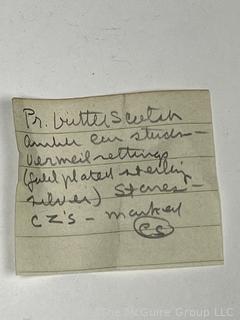 Pr. butterScotch
amber ear studs –
Vermeil settings
(gold plated sterling
silver) Stones –
CZ's – marked
CC
© 2023 The McGuire Group LLC